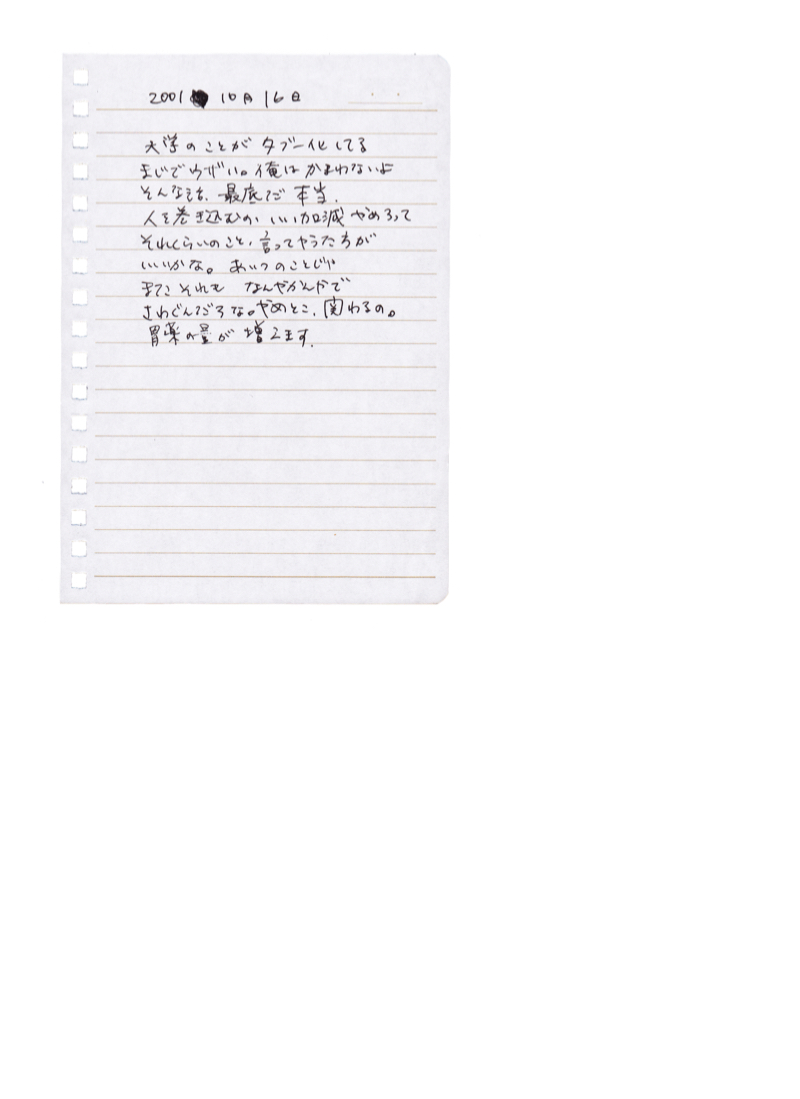 2001 10月16日
大学のことが タブー化してる
まじでウザい。俺はかまわないよ
そんなを、最底だ 本当、
人を巻き込むの、いい加減 やめろって
それくらいのこと、言ってやったらが
いいかな。あいつのことじゃ
またそれも なんやかんやで
さわぐんだろな。やめとこ、関わるの。
胃薬の量が 増えます。